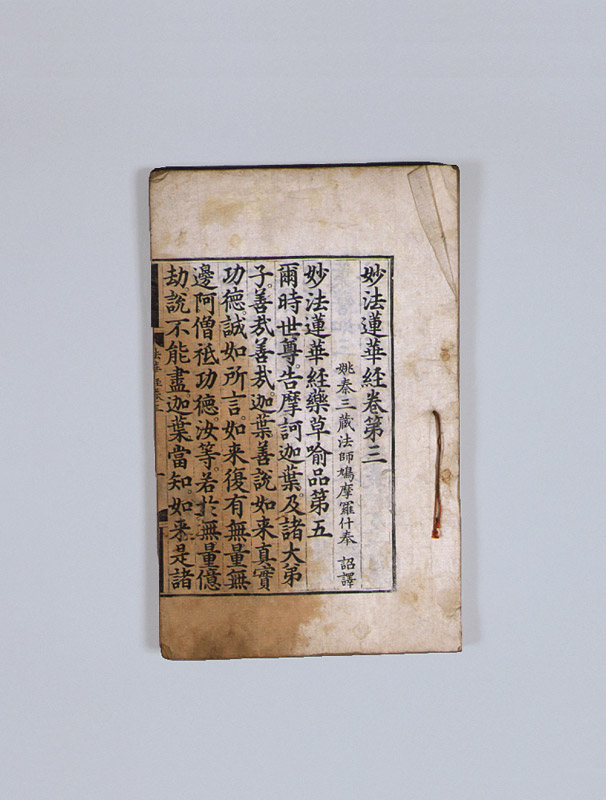 妙法蓮華経卷第三
姚秦三藏法師鳩摩羅什奉 詔譯
妙法蓮華経藥草喻品第五
爾時世尊。告摩訶迦葉。及諸大弟
子。善㢤善㢤。迦葉善說如来真實
功德。誠如所言。如来復有無量無
邊阿僧祇功德。汝等。若於無量億
劫說不能盡。迦葉當知。如来是諸
法華経卷三